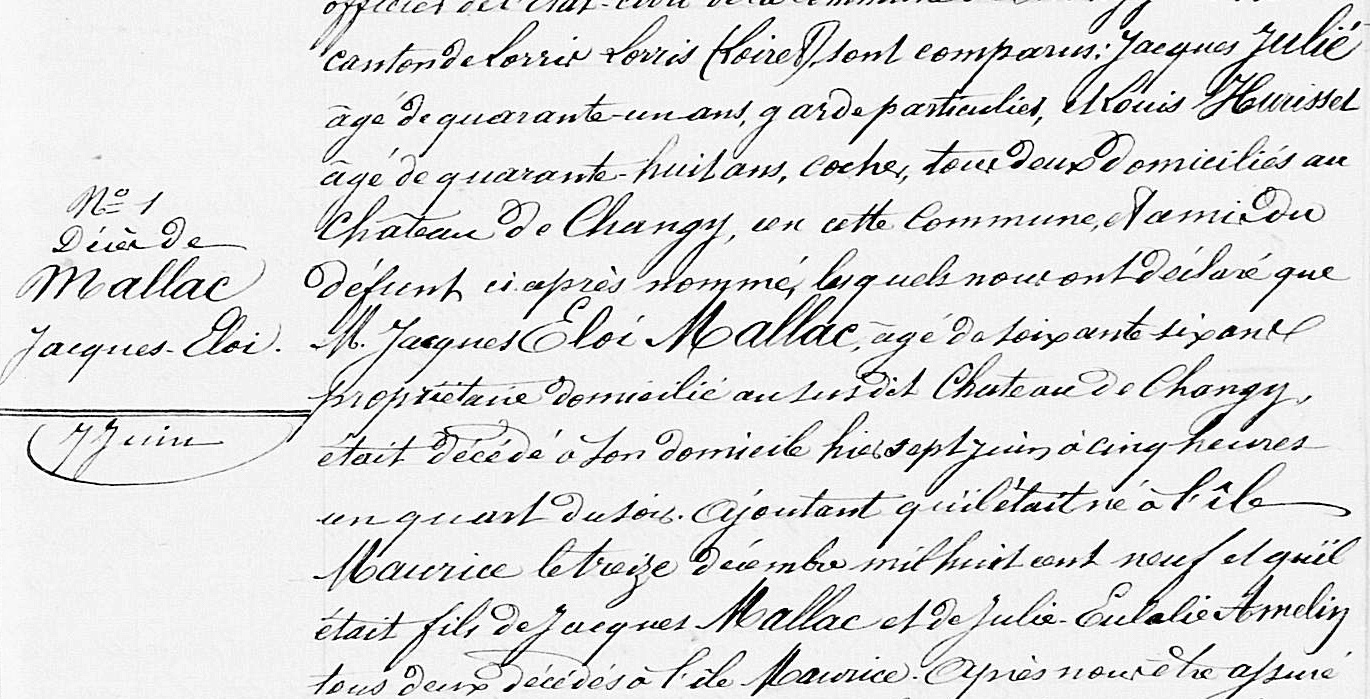 officier de l'état-civil de la commune
canton de Lorris Lorris (Loiret), sont comparus: Jacques Julié
âgé de quarante-un ans, garde particulier, et Louis Hurisset
âgé de quarante-huit ans, cocher, tous deux domiciliés au
Château de Changy, en cette Commune, et amis du
défunt ci après nommé, lesquels nous ont déclaré que
M. Jacques Eloi Mallac, âgé de soixante-six ans
propriétaire domicilié au susdit Château de Changy,
était décédé à son domicile hier sept juin à cinq heures
un quart du soir. Ajoutant qu'il était né à l'île
Maurice le treize décembre mil huit cent neuf et qu'il
était fils de Jacques Mallac et de Julie-Eulalie Amelin
tous deux décédés à l'île Maurice. Après nous être assuré
No 1
Décès de
Mallac
Jacques-Eloi.
7 Juin